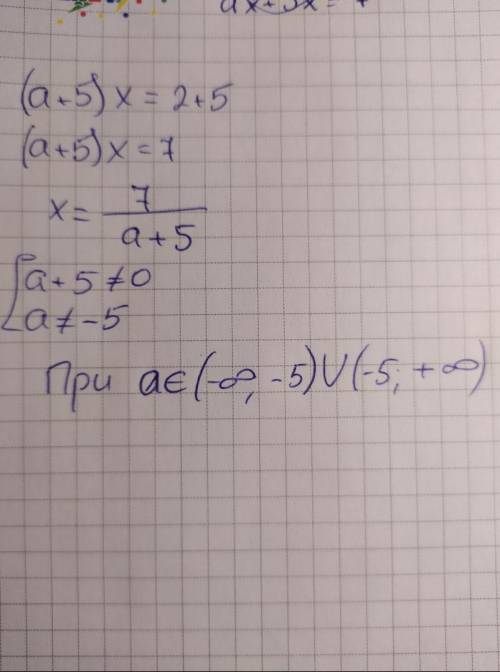 (a+5)x=2+5
(a+5)x=7
x=7/(a+5)
[a+5≠0
a≠-5
При a∈(-∞; -5)∪(-5; +∞)